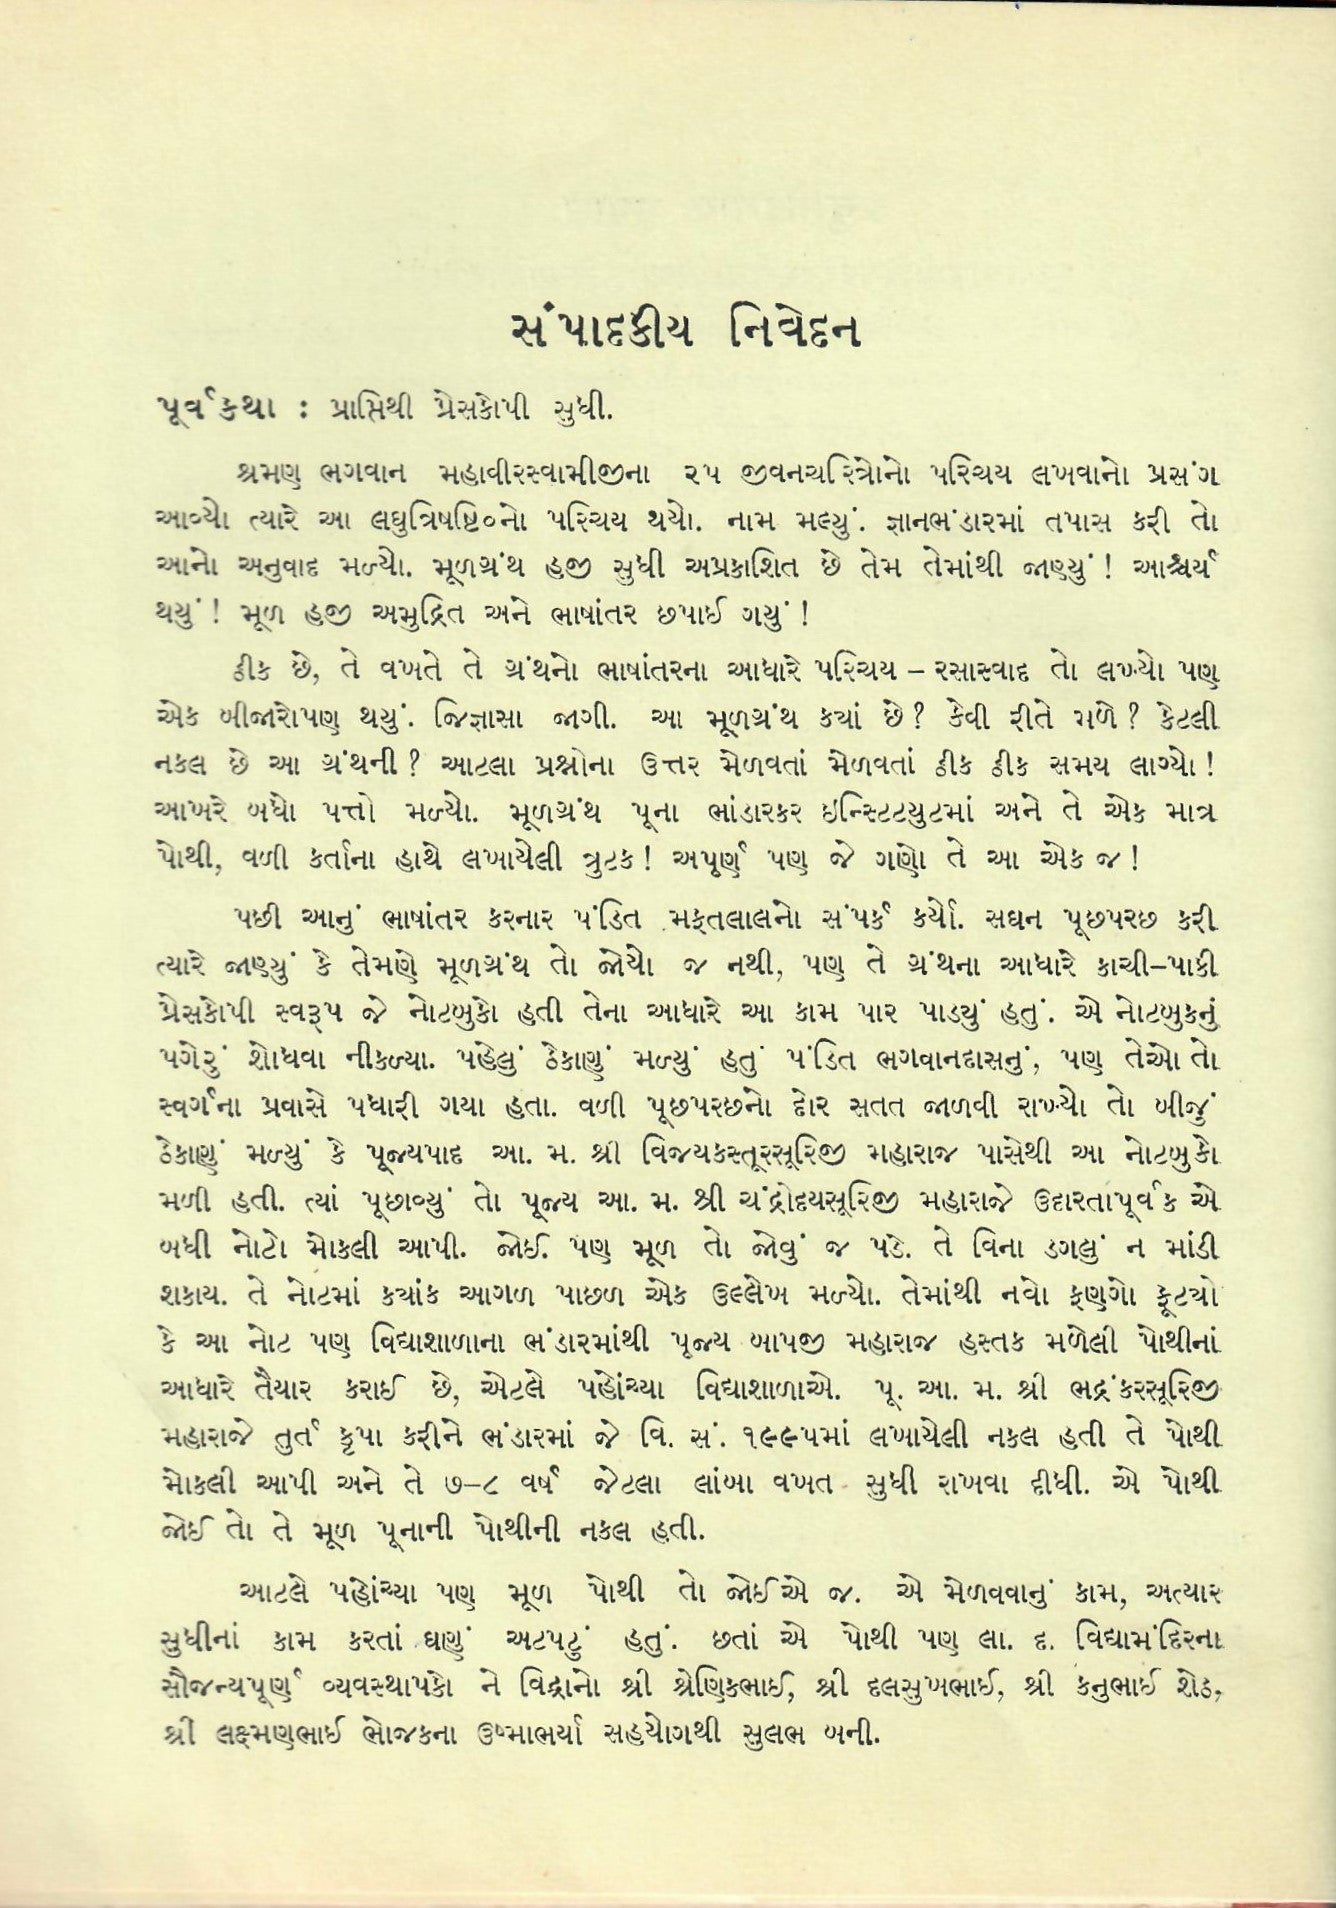 સંપાદકીય નિવેદન
પૂર્વકથા : પ્રાપ્તિથી પ્રેસકોપી સુધી.
શ્રમણ ભગવાન મહાવીરસ્વામીજીના ૨૫ જીવનચરિત્રોનો પરિચય લખવાનો પ્રસંગ
આવ્યો ત્યારે આ લઘુત્રિષષ્ટિ૦નો પરિચય થયો. નામ મળ્યું. જ્ઞાનભંડારમાં તપાસ કરી તો
આનો અનુવાદ મળ્યો. મૂળગ્રંથ હજી સુધી અપ્રકાશિત છે તેમ તેમાંથી જાણ્યું ! આશ્ચર્ય
થયું ! મૂળ હજી અમુદ્રિત અને ભાષાંતર છપાઈ ગયું !
ઠીક છે, તે વખતે તે ગ્રંથનો ભાષાંતરના આધારે પરિચય – રસાસ્વાદ તો લખ્યો પણ
એક બીજારોપણ થયું. જિજ્ઞાસા જાગી. આ મૂળગ્રંથ કયાં છે ? કેવી રીતે મળે ? કેટલી
નકલ છે આ ગ્રંથની ? આટલા પ્રશ્નોના ઉત્તર મેળવતાં મેળવતાં ઠીક ઠીક સમય લાગ્યો !
આખરે બધો પત્તો મળ્યો. મૂળગ્રંથ પૂના ભાંડારકર ઇન્સ્ટિટયુટમાં અને તે એક માત્ર
પોથી, વળી કર્તાના હાથે લખાયેલી ત્રુટક ! અપૂર્ણ પણ જે ગણો તે આ એક જ !
પછી આનું ભાષાંતર કરનાર પંડિત મફતલાલનો સંપર્ક કર્યો. સઘન પૂછપરછ કરી
ત્યારે જાણ્યું કે તેમણે મૂળગ્રંથ તો જોયો જ નથી, પણ તે ગ્રંથના આધારે કાચી–પાકી
પ્રેસકોપી સ્વરૂપ જે નોટબુકો હતી તેના આધારે આ કામ પાર પાડયું હતું. એ નોટબુકનું
પગેરું શોધવા નીકળ્યા. પહેલું ઠેકાણું મળ્યું હતું પંડિત ભગવાનદાસનું, પણ તેઓ તો
સ્વર્ગના પ્રવાસે પધારી ગયા હતા. વળી પૂછપરછનો દોર સતત જાળવી રાખ્યો તો બીજું
ઠેકાણું મળ્યું કે પૂજ્યપાદ આ. મ. શ્રી વિજયકસ્તૂરસૂરિજી મહારાજ પાસેથી આ નોટબુકો
મળી હતી. ત્યાં પૂછાવ્યું તો પૂજ્ય આ. મ. શ્રી ચંદ્રોદયસૂરિજી મહારાજે ઉદારતાપૂર્વક એ
બધી નોટો મોકલી આપી. જોઈ. પણ મૂળ તો જોવું જ પડે. તે વિના ડગલું ન માંડી
શકાય. તે નોટમાં કયાંક આગળ પાછળ એક ઉલ્લેખ મળ્યો. તેમાંથી નવો ફણગો ફૂટયો
કે આ નોટ પણ વિદ્યાશાળાના ભંડારમાંથી પૂજ્ય બાપજી મહારાજ હસ્તક મળેલી પોથીનાં
આધારે તૈયાર કરાઈ છે, એટલે પહોંચ્યા વિદ્યાશાળાએ. પૂ. આ. મ. શ્રી ભદ્રંકરસૂરિજી
મહારાજે તુર્ત કૃપા કરીને ભંડારમાં જે વિ. સં. ૧૯૯૫માં લખાયેલી નકલ હતી તે પોથી
મોકલી આપી અને તે ૭–૮ વર્ષ જેટલા લાંબા વખત સુધી રાખવા દીધી. એ પોથી
જોઈ તો તે મૂળ પૂનાની પોથીની નકલ હતી.
આટલે પહોંચ્યા પણ મૂળ પોથી તો જોઈએ જ. એ મેળવવાનું કામ, અત્યાર
સુધીનાં કામ કરતાં ઘણું અટપટું હતું. છતાં એ પોથી પણ લા. દ. વિદ્યામંદિરના
સૌજન્યપૂર્ણ વ્યવસ્થાપકો ને વિદ્વાનો શ્રી શ્રેણિકભાઈ, શ્રી દલસુખભાઈ, શ્રી કનુભાઈ શેઠ,
શ્રી લક્ષ્મણભાઈ ભોજકના ઉષ્માભર્યા સહયોગથી સુલભ બની.